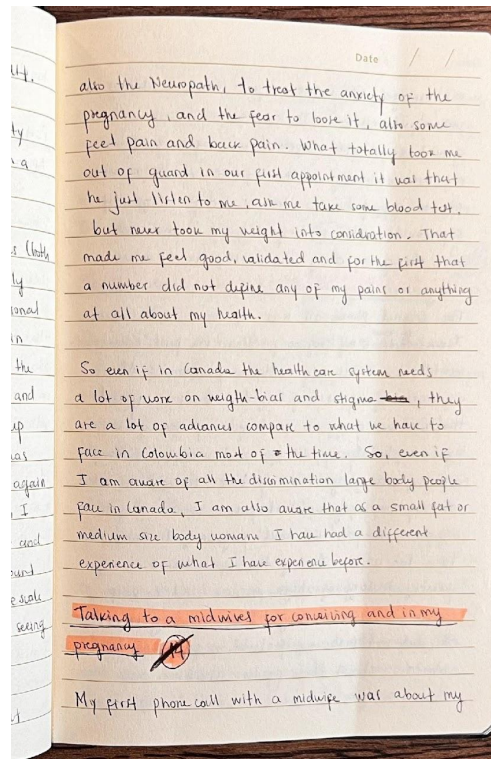 Date / /
also the Neuropath, to treat the anxiety of the
pregnancy, and the fear to loose it, also some
feet pain and back pain. What totally took me
out of guard in our first appointment it was that
he just listen to me, ask me take some blood tst.
but never took my weight into considration. That
made me feel good, validated and for the first that
a number did not define any of my pains or anything
at all about my health.
So even if in Canada the health care system needs
a lot of work on weigth-bias and stigma bia, they
are a lot of advances compare to what we have to
face in Colombia most of the time. So, even if
I am aware of all the discrimination large body people
face in Canada, I am also aware that as a small fat or
medium size body womam I have had a different
experience of what I have experience before.
Talking to a midwives for conceiving and in my
pregnancy 14
My first phone call with a midwife was about my
ty
a
s (both
ly
ional
in
the
and
up
as
again
I
and
ound
e scale
seeing